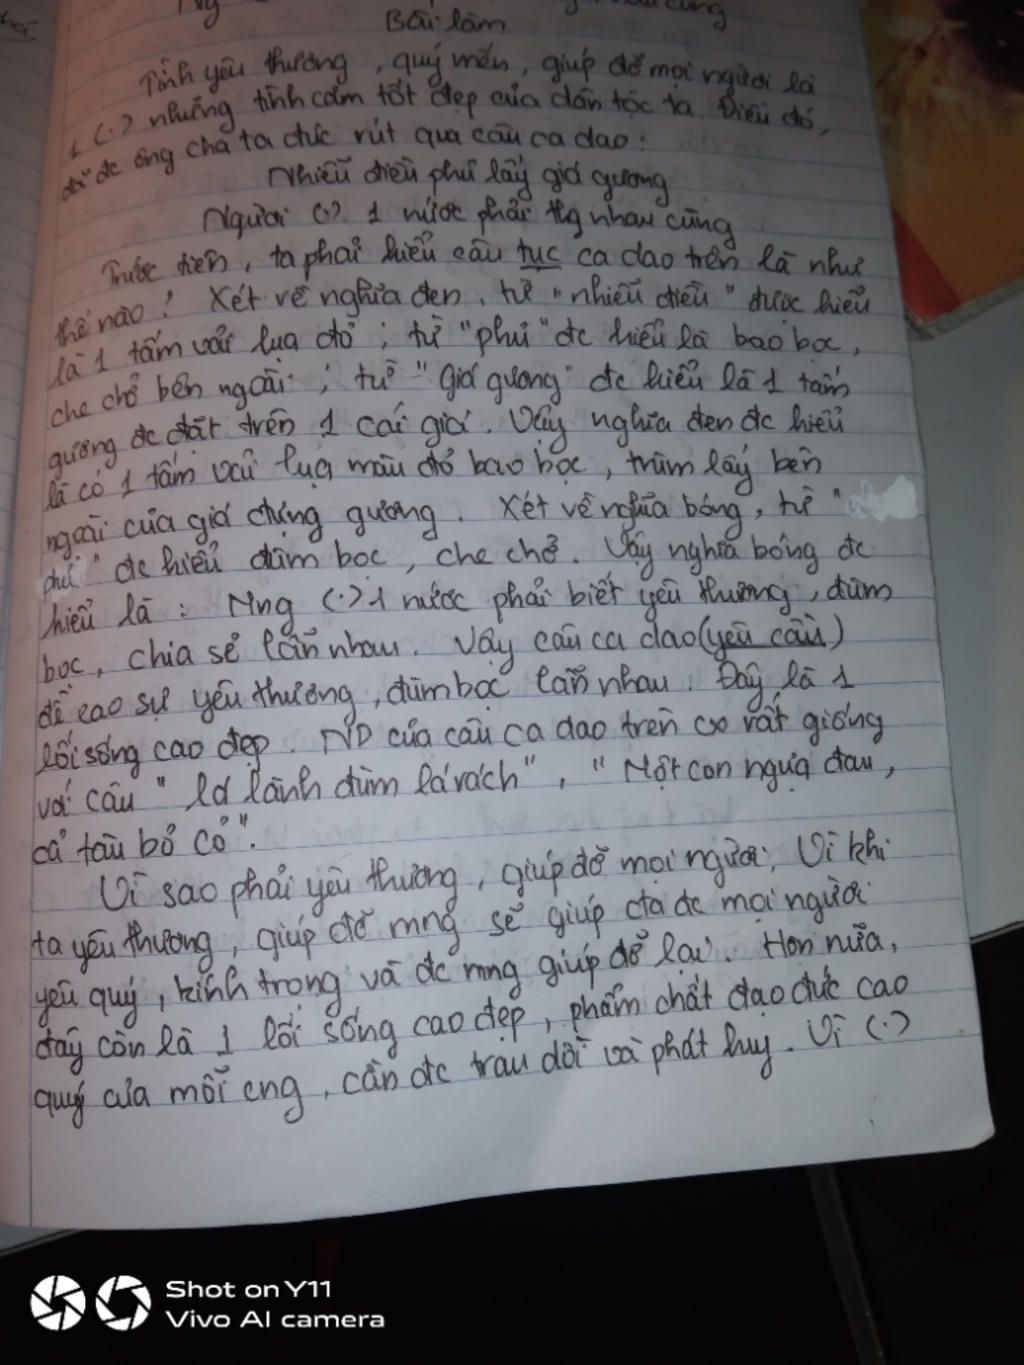 Bài làm
Tình yêu thương, quý mến, giúp đỡ mọi người là
1 (.) những tình cảm tốt đẹp của dân tộc ta. Điều đó,
đã đc ông cha ta đúc rút qua câu ca dao:
Nhiễu điều phủ lấy giá gương
Người (.) 1 nước phải thg nhau cùng
Trước tiên, ta phải hiểu câu tục ca dao trên là như
thế nào? Xét về nghĩa đen, từ "nhiễu điều" được hiểu
là 1 tấm vải lụa đỏ; từ "phủ" đc hiểu là bao bọc,
che chở bên ngoài; từ "giá gương" đc hiểu là 1 tấm
gương đc đặt trên 1 cái giá. Vậy nghĩa đen đc hiểu
là có 1 tấm vải lụa màu đỏ bao bọc, trùm lấy bên
ngoài của giá đựng gương. Xét về nghĩa bóng, từ "
phủ" đc hiểu đùm bọc, che chở. Vậy nghĩa bóng đc
hiểu là: Mng (.) 1 nước phải biết yêu thương, đùm
bọc, chia sẻ lẫn nhau. Vậy câu ca dao (yêu cầu)
đề cao sự yêu thương, đùm bọc lẫn nhau. Đây là 1
lối sống cao đẹp. ND của câu ca dao trên có rất giống
với câu "lá lành đùm lá rách", "Một con ngựa đau,
cả tàu bỏ cỏ".
Vì sao phải yêu thương, giúp đỡ mọi người; Vì khi
ta yêu thương, giúp đỡ mng sẽ giúp cta đc mọi người
yêu quý, kính trọng và đc mng giúp đỡ lại. Hơn nữa,
đây còn là 1 lối sống cao đẹp, phẩm chất đạo đức cao
quý của mỗi cng, cần đc trau dồi và phát huy. Vì (.)
Shot on Y11
Vivo AI camera